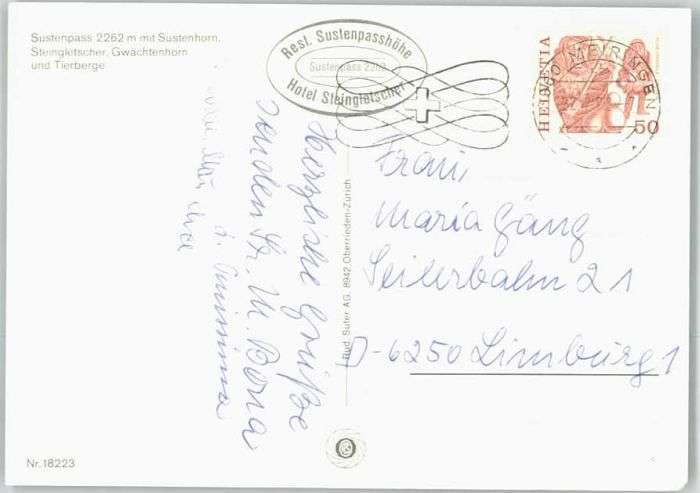 Sustenpass 2262 m mit Sustenhorn,
Steingletscher, Gwächtenhorn
und Tierberge
Rest. Sustenpasshöhe
Sustenpass 2262
Hotel Steingletscher
HELVETIA
50
MEIRINGEN
Herzliche Grüße
senden Sr. M. Bona
Frau,
Maria Gäng
Seilerbahn 21
D-6250 Limburg 1
Rud. Suter AG, 8942 Oberrieden-Zürich
Nr. 18223